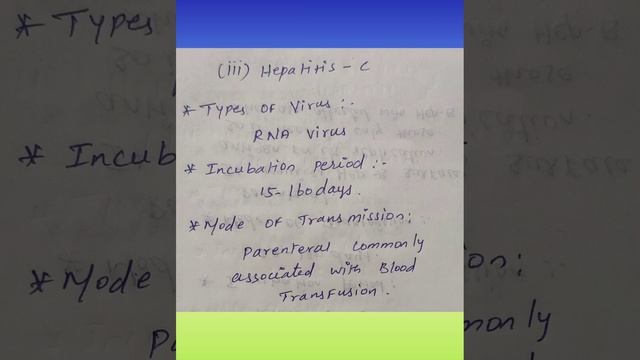 (iii) Hepatitis - C
* Types of Virus :-
RNA Virus
* Incubation period :-
15-160 days.
* Mode of Transmission:
Parenteral commonly
associated with Blood
Transfusion.